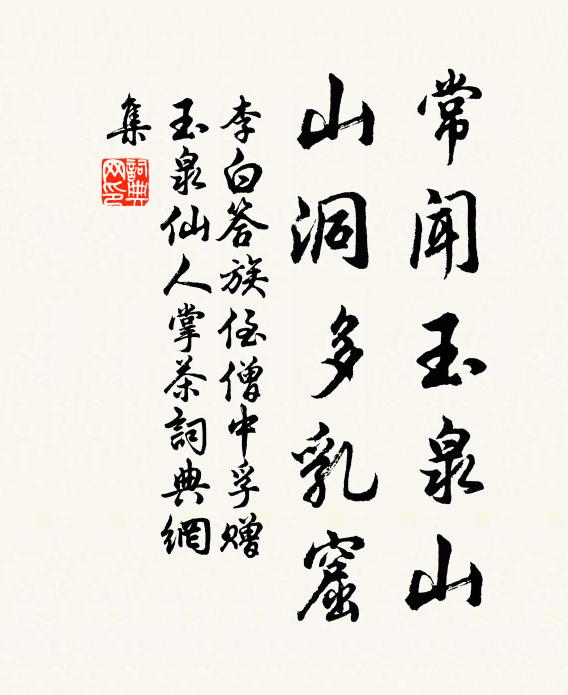 常聞玉泉山
山洞多乳窟
李白答族侄僧中孚赠
玉泉仙人掌茶詞典網
集
詞典网印